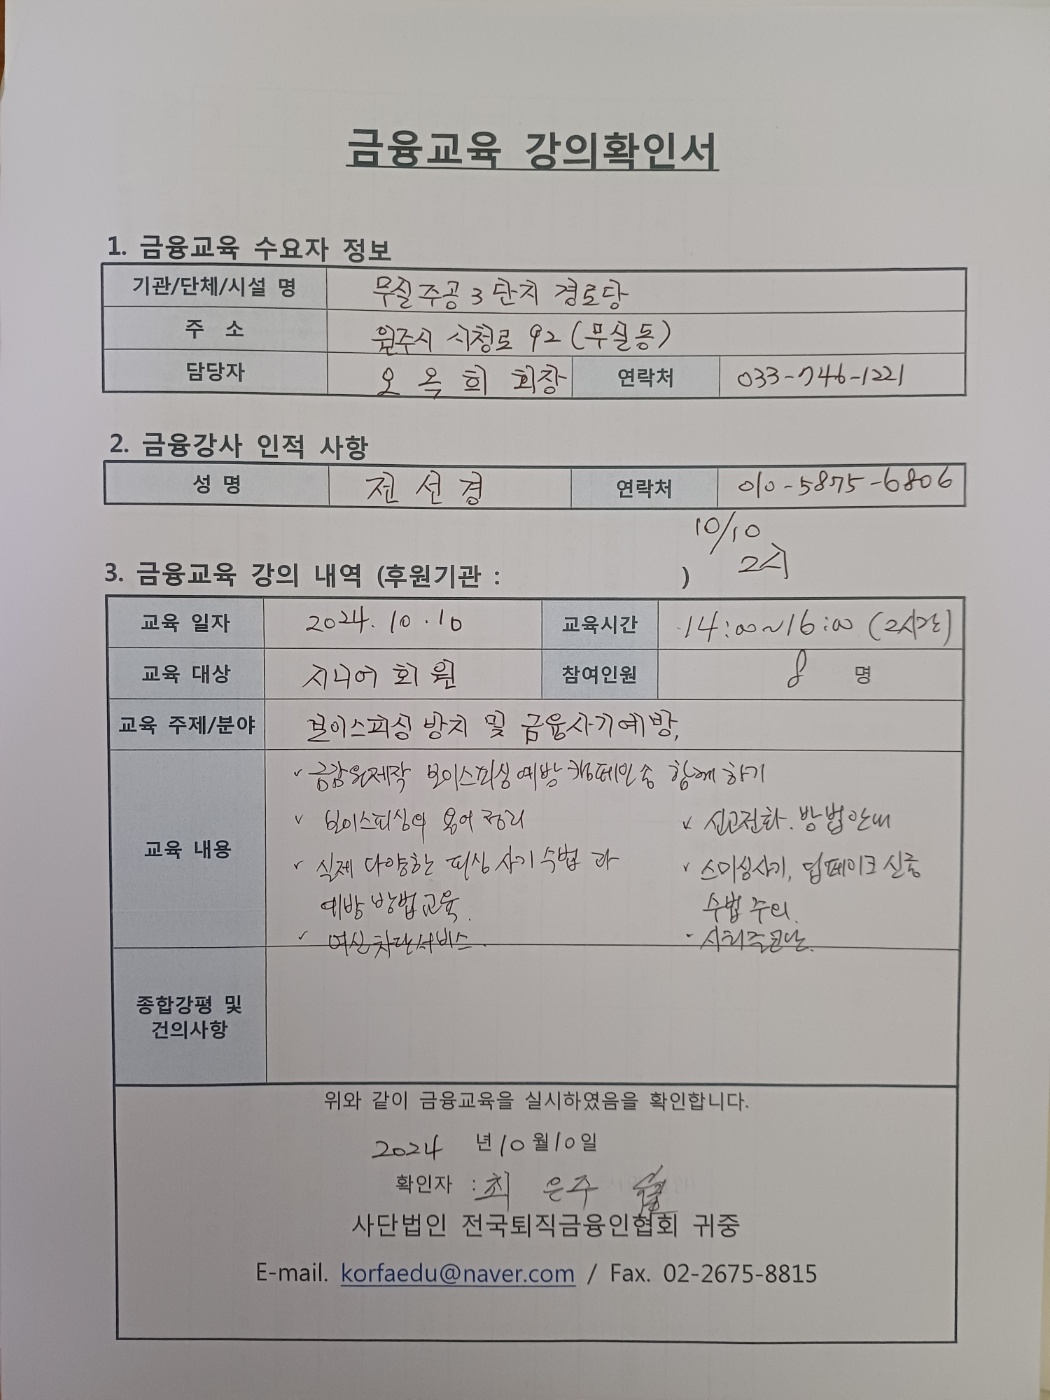 금융교육 강의확인서
1. 금융교육 수요자 정보
기관/단체/시설 명 무실주공 3 단지 경로당
주 소 원주시 시청로 92 (무실동)
담당자 오 옥 희 회장 연락처 033-746-1221
2. 금융강사 인적 사항
성 명 전 선 경 연락처 010-5875-6806
10/10
2시
3. 금융교육 강의 내역 (후원기관 : )
교육 일자 2024. 10. 10 교육시간 14:00~16:00 (2시간)
교육 대상 시니어 회원 참여인원 8 명
교육 주제/분야 보이스피싱 방지 및 금융사기예방,
교육 내용
✓ 금감원제작 보이스피싱예방 캠페인송 함께하기
✓ 보이스피싱의 용어 정리
✓ 신고전화. 방법안내
✓ 실제 다양한 피싱 사기수법 과
✓ 스미싱사기, 딥페이크 신종
예방 방법교육.
수법 주의.
✓ 여신차단서비스.
-
종합강평 및
건의사항
위와 같이 금융교육을 실시하였음을 확인합니다.
2024 년 10 월 10 일
확인자 : 최 은주
사단법인 전국퇴직금융인협회 귀중
E-mail. korfaedu@naver.com / Fax. 02-2675-8815